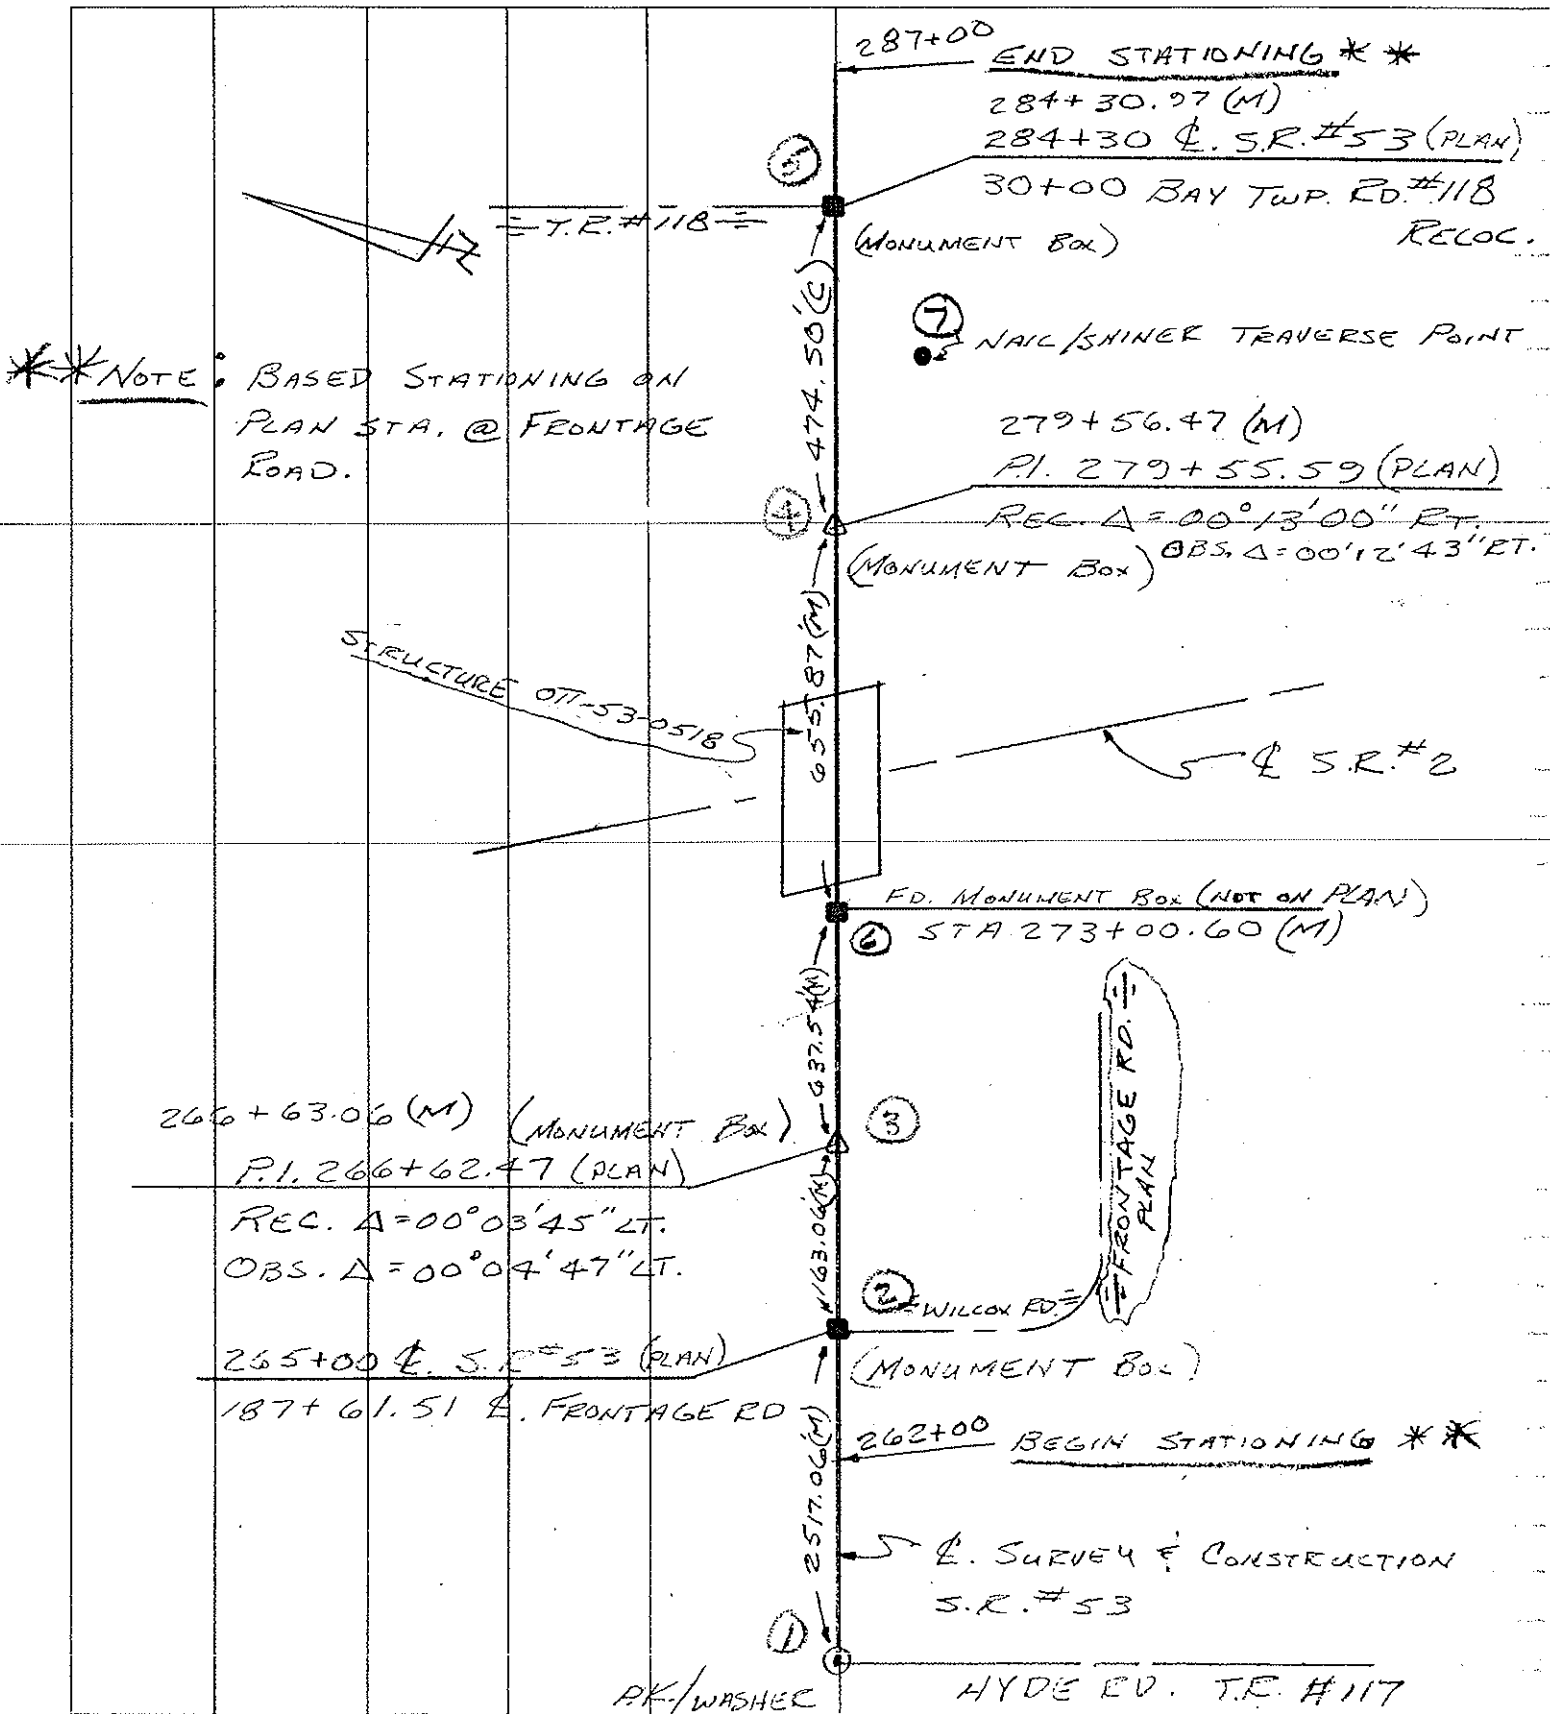 287+00
END STATIONING * *
284+30.97 (M)
284+30 ℄. S.R. #53 (PLAN)
30+00 BAY TWP. RD. #118
RELOC.
5
= T.R. #118 =
(MONUMENT BOX)
474.50' (C)
7
NAIL/SHINER TRAVERSE POINT
** NOTE : BASED STATIONING ON
PLAN STA. @ FRONTAGE
ROAD.
279+56.47 (M)
P.I. 279+55.59 (PLAN)
REC. Δ = 00°13'00" RT.
OBS. Δ = 00'12'43" RT.
4
(MONUMENT BOX)
655.87' (M)
STRUCTURE OTT-53-0518
℄ S.R. #2
FD. MONUMENT BOX (NOT ON PLAN)
6
STA 273+00.60 (M)
637.54' (M)
= FRONTAGE RD. =
PLAN
266+63.06 (M) (MONUMENT BOX)
3
P.I. 266+62.47 (PLAN)
REC. Δ = 00°03'45" LT.
OBS. Δ = 00°04'47" LT.
163.06' (M)
2
= WILCOX RD. =
265+00 ℄. S.R. #53 (PLAN)
(MONUMENT BOX)
187+61.51 ℄. FRONTAGE RD
262+00
BEGIN STATIONING * *
2517.06' (M)
℄. SURVEY & CONSTRUCTION
S.R. #53
1
P.K./WASHER
HYDE RD. T.R. #117